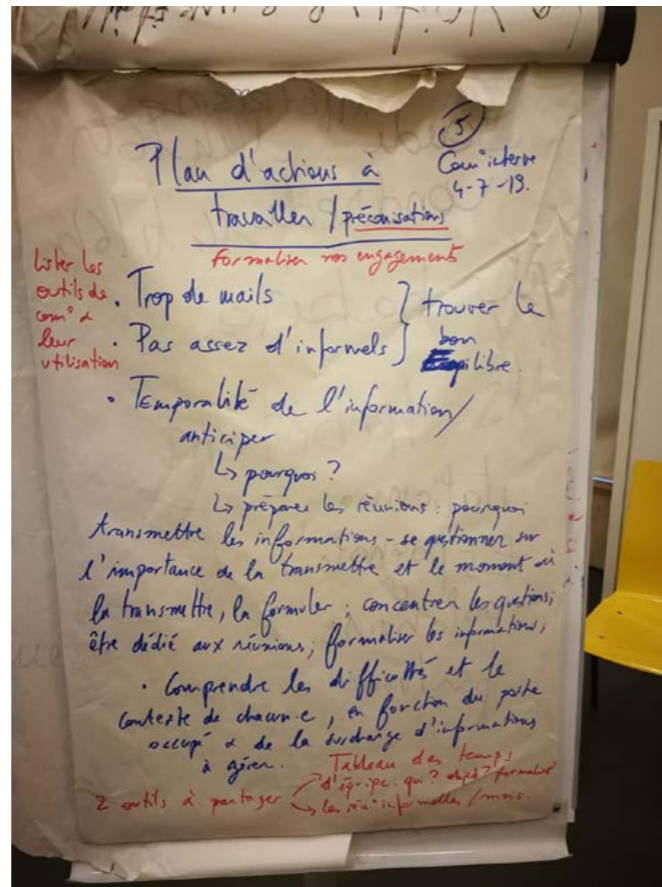 5
Plan d'actions à
Com° interne
4-7-19.
travailler / préconisations
formaliser nos engagements
Lister les
outils de
com° &
leur
utilisation
• Trop de mails
• Pas assez d'informels
} trouver le
bon
Equilibre.
• Temporalité de l'information /
anticiper
↳ pourquoi ?
↳ préparer les réunions : pourquoi
transmettre les informations - se questionner sur
l'importance de la transmettre et le moment où
la transmettre, la formuler ; concentrer les questions ;
être dédié aux réunions ; formaliser les informations ;
• Comprendre les difficultés et le
contexte de chacun·e, en fonction du poste
occupé & de la surcharge d'informations
à gérer.
2 outils à partager
Tableau des temps
d'équipe : qui ? objet ?
↳ les réu° informelles / mois.